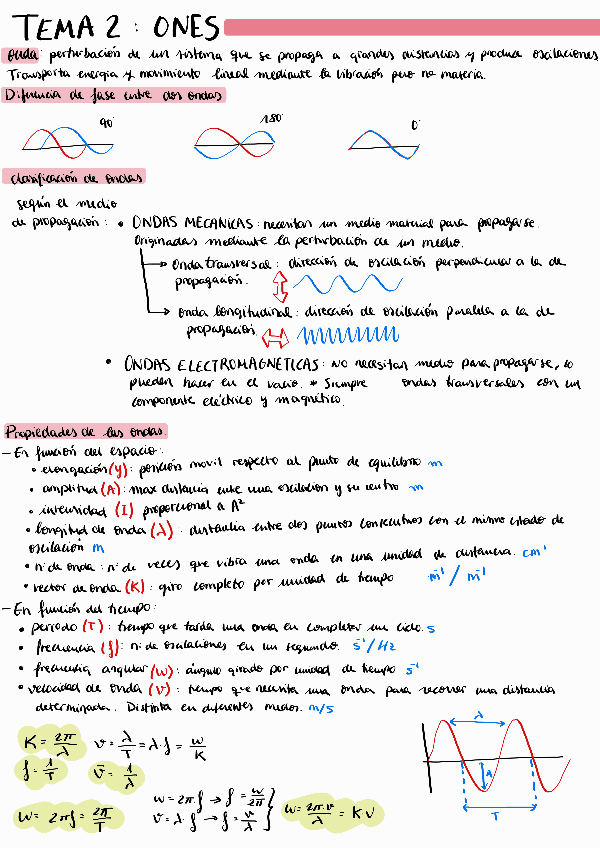 TEMA 2 : ONES
onda: perturbación de un sistema que se propaga a grandes distancias y produce oscilaciones
Transporta energía y movimiento lineal mediante la vibración pero no materia.
Diferencia de fase entre dos ondas
90°
180°
0°
Clasificación de ondas
según el medio
de propagación: • ONDAS MECANICAS: necesitan un medio material para propagarse.
Originadas mediante la perturbación de un medio.
→ Onda transversal: dirección de oscilación perpendicular a la de
propagación.
→ onda longitudinal: dirección de oscilación paralela a la de
propagación.
• ONDAS ELECTROMAGNÉTICAS: No necesitan medio para propagarse, lo
pueden hacer en el vacío. * Siempre ondas transversales con un
componente eléctrico y magnético.
Propiedades de las ondas
- En función del espacio:
• elongación (y): posición movil respecto al punto de equilibrio m
• amplitud (A): max distancia entre una oscilación y su centro m
• intensidad (I) proporcional a A²
• longitud de onda (λ): distancia entre dos puntos consecutivos con el mismo estado de
oscilación m
• n° de onda: n° de veces que vibra una onda en una unidad de distancia. cm⁻¹
• vector de onda (K): giro completo por unidad de tiempo m⁻¹ / m⁻¹
- En función del tiempo:
• periodo (T): tiempo que tarda una onda en completar un ciclo. s
• frecuencia (f): n° de oscilaciones en un segundo. s⁻¹/Hz
• frecuencia angular (w): ángulo girado por unidad de tiempo s⁻¹
• velocidad de onda (v): tiempo que necesita una onda para recorrer una distancia
determinada. Distinta en diferentes medios. m/s
K = 2π/λ v = λ/T = λ·f = w/K
f = 1/T v̄ = 1/λ
w = 2πf = 2π/T
w = 2π·f → f = w/2π
v = λ·f → f = v/λ
w = 2π·v/λ = Kv
λ
A
T